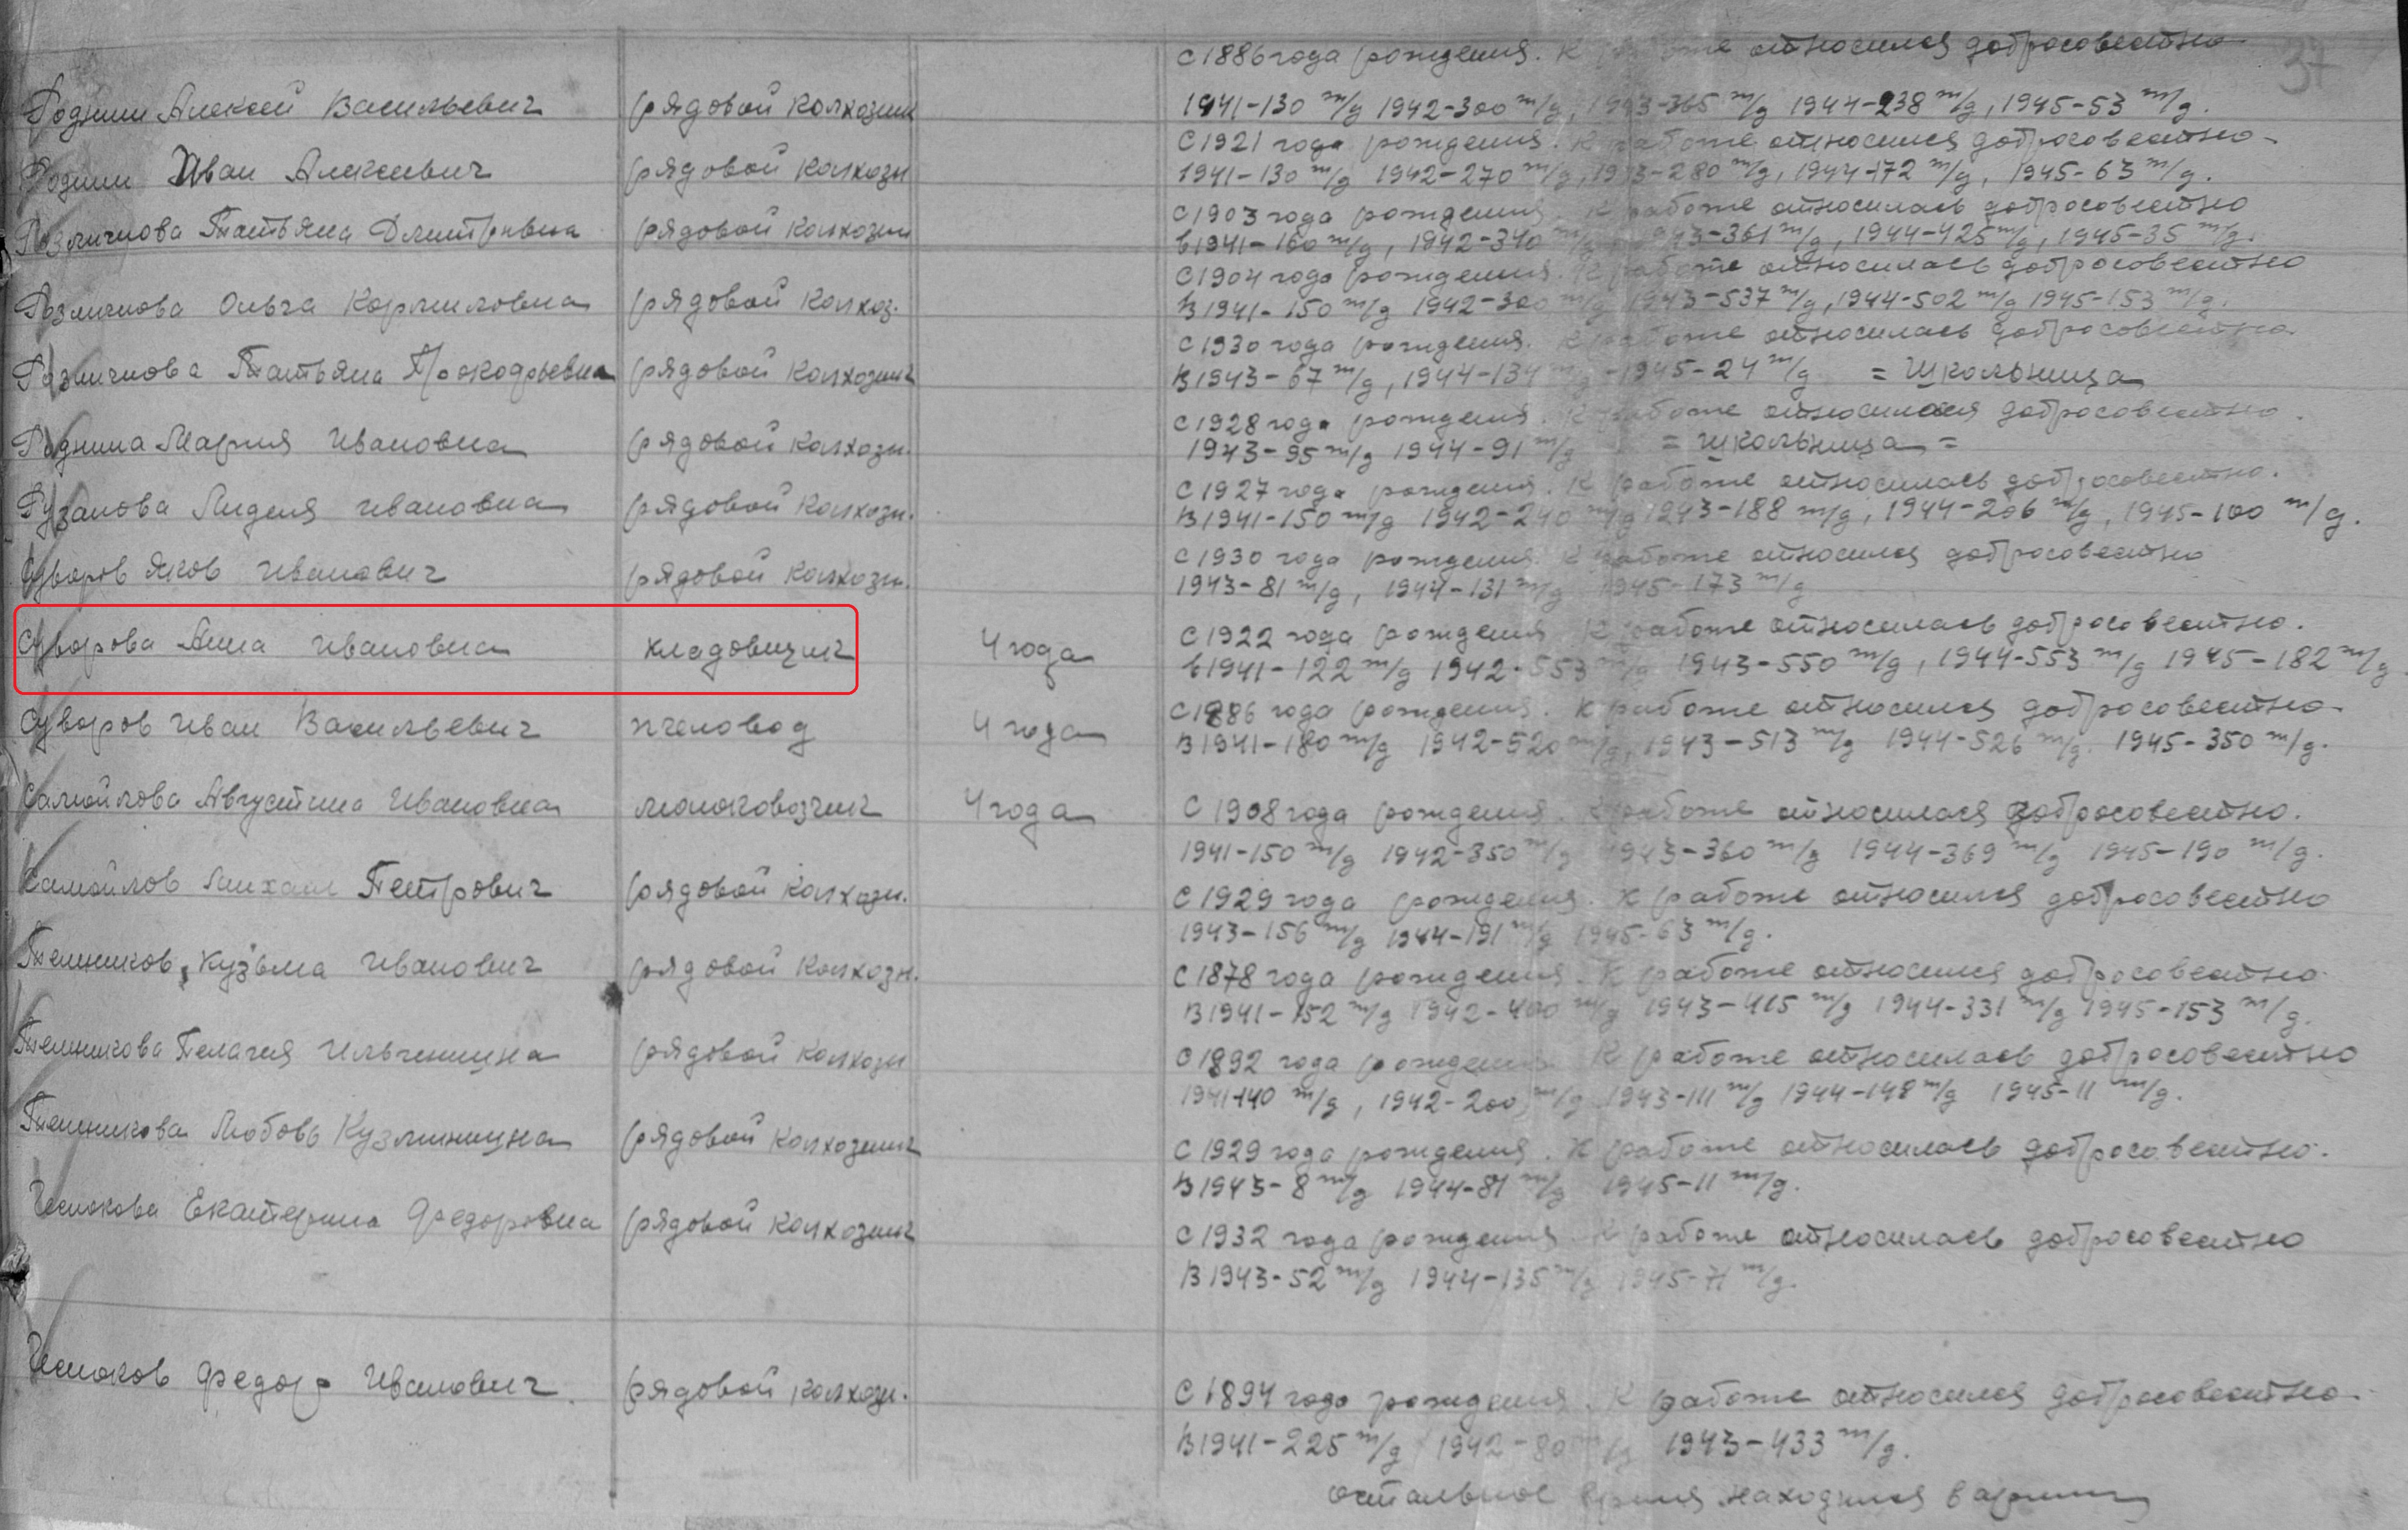 37
С 1886 года рождения. К работе относился добросовестно
Роднин Алексей Васильевич рядовой колхозник 1941-130 т/д 1942-300 т/д, 1943-365 т/д 1944-238 т/д, 1945-53 т/д.
С 1921 года рождения. К работе относился добросовестно-
Роднин Иван Алексеевич рядовой колхозн 1941-130 т/д 1942-270 т/д, 1943-280 т/д, 1944-172 т/д, 1945-63 т/д.
С 1903 года рождения. К работе относилась добросовестно
Татьяна Дмитривна рядовой колхозн в 1941-160 т/д, 1942-340 т/д 1943-361 т/д, 1944-425 т/д, 1945-35 т/д.
С 1904 года рождения. К работе относилась добросовестно
Ольга Корниловна рядовой колхоз. В 1941-150 т/д 1942-300 т/д 1943-537 т/д, 1944-502 т/д 1945-153 т/д.
С 1930 года рождения. К работе относилась добросовестно.
Татьяна Прокофьевна рядовой колхозник В 1943-67 т/д, 1944-134 т/д -1945-24 т/д = школьница
С 1928 года рождения. К работе относилася добросовестно.
Роднина Мария Ивановна рядовой колхозн. 1943-95 т/д 1944-91 т/д = школьница =
С 1927 года рождения. К работе относилась добросовестно.
Рузанова Лидия Ивановна рядовой колхозн. В 1941-150 т/д 1942-240 т/д 1943-188 т/д, 1944-206 т/д, 1945-100 т/д.
С 1930 года рождения. К работе относился добросовестно
Суворов Яков Иванович рядовой колхозн. 1943-81 т/д, 1944-131 т/д 1945-173 т/д
С 1922 года рождения К работе относилась добросовестно.
Суворова Анна Ивановна кладовщик 4 года в 1941-122 т/д 1942-553 т/д 1943-550 т/д, 1944-553 т/д 1945-182 т/д
С 1886 года рождения. К работе относился добросовестно-
Суворов Иван Васильевич пчеловод 4 года В 1941-180 т/д 1942-520 т/д, 1943-513 т/д 1944-526 т/д. 1945-350 т/д.
Самойлова Августина Ивановна молоковозчик 4 года С 1908 года рождения. К работе относилася добросовестно.
1941-150 т/д 1942-350 т/д 1943-360 т/д 1944-369 т/д 1945-190 т/д.
Самойлов Михаил Петрович рядовой колхозн. С 1929 года рождения. К работе относился добросовестно
1943-156 т/д 1944-191 т/д 1945-63 т/д.
Кузьма Иванович рядовой колхозн. С 1878 года рождения. К работе относился добросовестно
В 1941-152 т/д 1942-400 т/д 1943-415 т/д 1944-331 т/д 1945-153 т/д.
Пелагия Ильинишна рядовой колхозн С 1892 года рождения К работе относилась добросовестно
1941-140 т/д, 1942-200 т/д 1943-111 т/д 1944-148 т/д 1945-11 т/д.
Любовь Кузминишна рядовой колхозник С 1929 года рождения. К работе относилась добросовестно.
В 1943-8 т/д 1944-81 т/д 1945-11 т/д.
Екатерина Федоровна рядовой колхозник С 1932 года рождения К работе относилась добросовестно
В 1943-52 т/д 1944-135 т/д 1945-71 т/д.
Федор Иванович рядовой колхозн. С 1894 года рождения. К работе относился добросовестно.
В 1941-225 т/д 1942-80 т/д 1943-433 т/д.
остальное время находился в армии